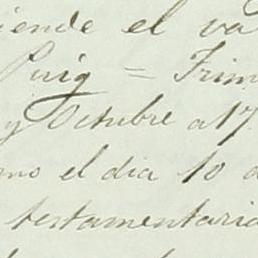 iende el va
Puig = Trim
y Octubre a 17
mo el dia 10 d
testamentaria